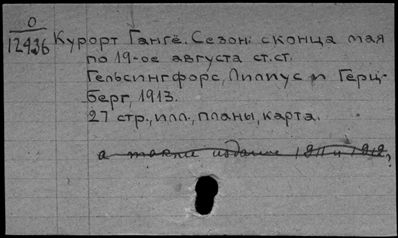 0
12936
Курорт Гангё. Сезон: с конца мая
по 19-ое августа ст.ст.
Гельсингфорс, Лиллус и Герц-
берг, 1913.
27 стр., илл., планы, карта.
а также издание 1911 и 1912,